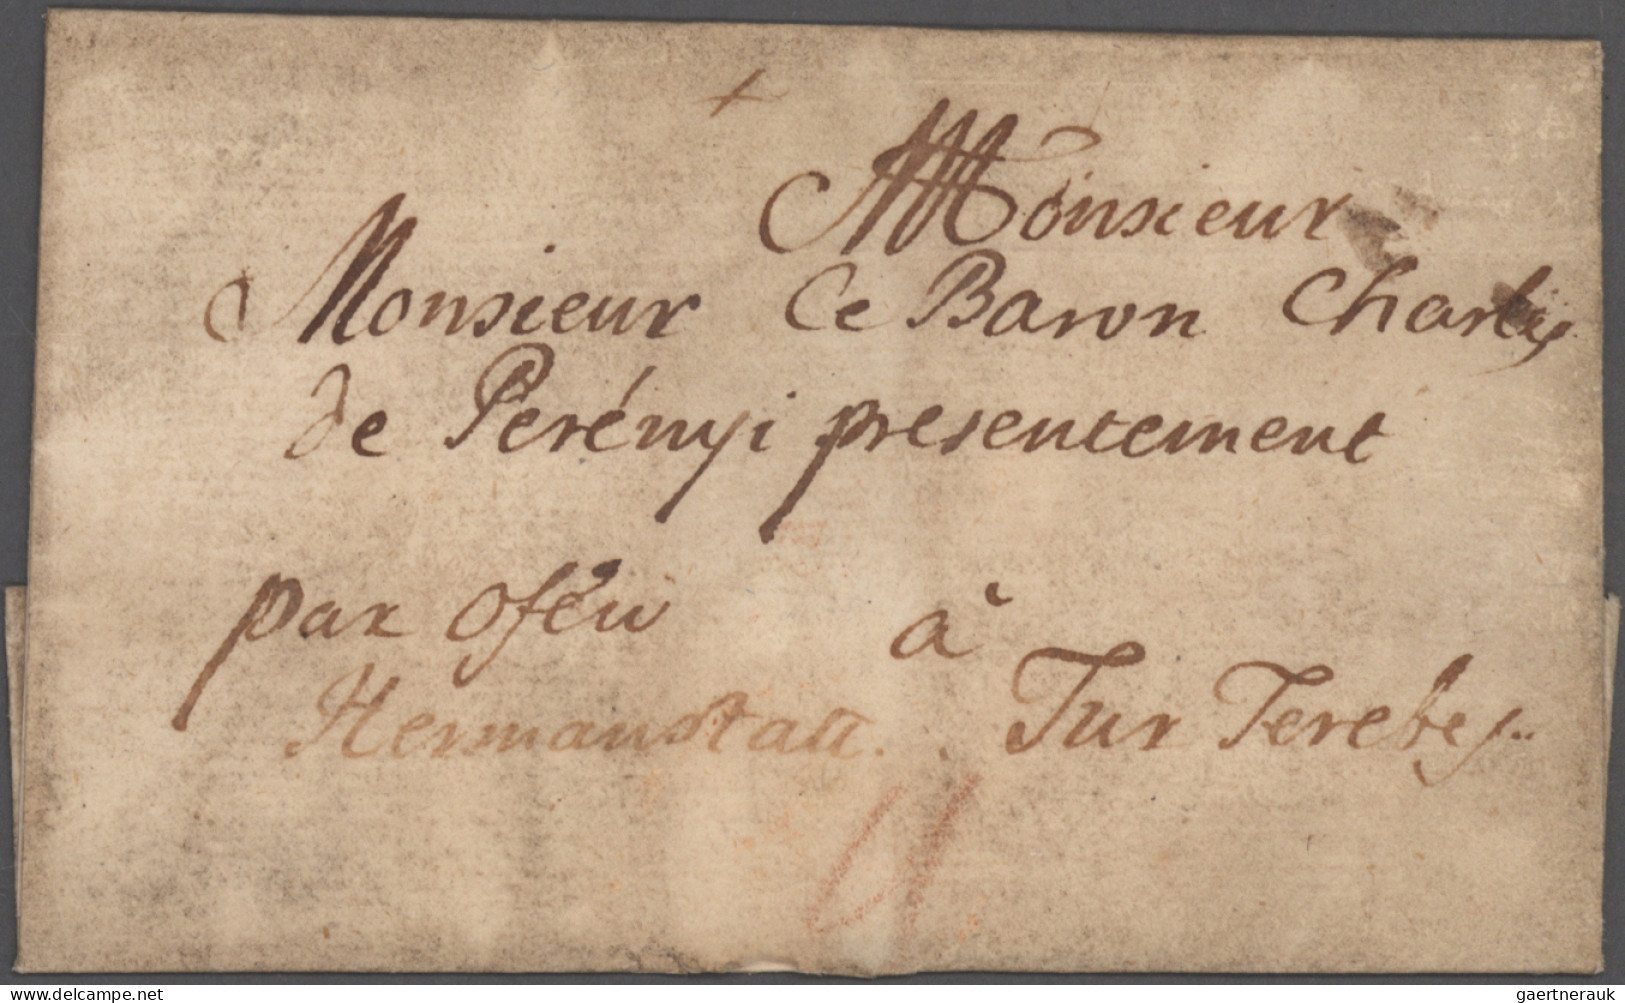 Monsieur
Monsieur Le Baron Charles
de Perényi presentement
par Ofén à
Hermanstatt. Tur Terebes
delcampe.net
gaertnerauk